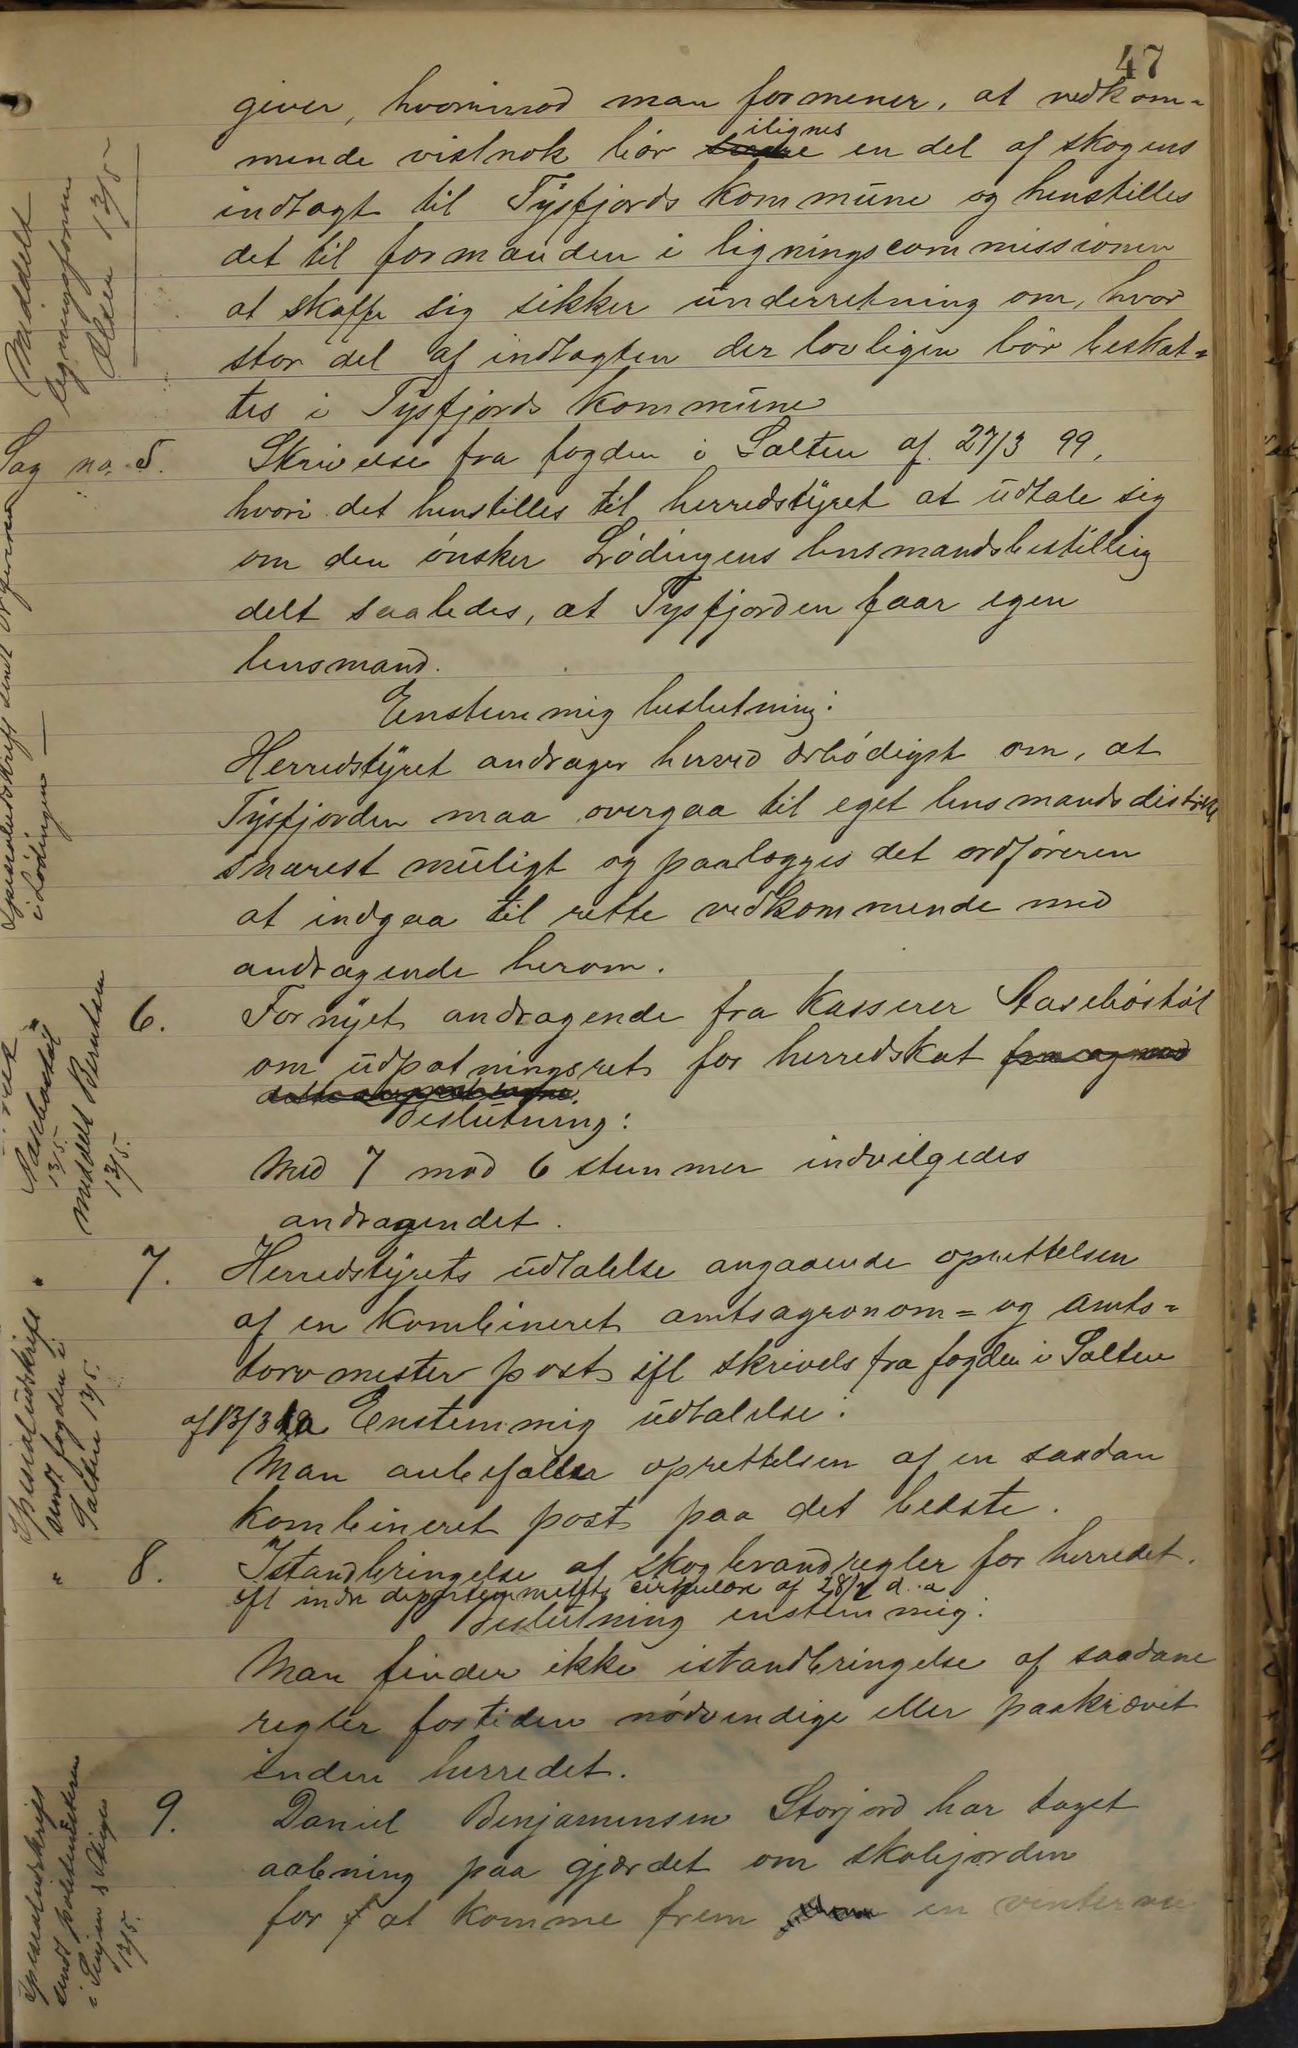 47
giver, hvorimod man formener, at vedkom-
mende vistnok bör ilignes en del af skogens
indtægt til Tysfjords kommune og henstilles
det til formanden i ligningscommissionen
at skaffe sig sikker underretning om, hvor
stor del af indtægten der lovligen bör beskat-
tes i Tysfjords kommune
Meddelt
ligningsformn
Olsen 13/5
Sag no. 5. Skrivelse fra fogden i Salten af 27/3 99,
hvori det henstilles til herredstyret at udtale sig
om den ónsker Lódingens lensmandsbestilling
delt saaledes, at Tysfjorden faar egen
lensmand.
Enstemmig beslutning:
Herredstyret andrager herved ærbódigst om, at
Tysfjorden maa overgaa til eget lensmandsdistrikt
snarest muligt og paalægges det ordföreren
at indgaa til rette vedkommende med
andragende herom.
Specialudskrift sendt ordföreren
i Lödingen
" 6. Fornyet andragende fra kasserer Stasebóstöl
om udpatningsret for herredskat fra og med
Beslutning:
Med 7 mod 6 stemmer indvilgedes
andragendet.
13/5.
Meddelt Berntsen
13/5.
" 7. Herredstyrets udtalelse angaaende oprettelsen
af en kombineret amtsagronom= og amts-
torvmester post ifl skrivels fra fogden i Salten
af 13/3 Enstemmig udtalelse:
Man anbefaller oprettelsen af en saadan
kombineret post paa det bedste.
Specialudskrift
sendt fogden i
Salten 13/5.
" 8. Istandbringelse af skogbrandregler for herredet.
ifl indre departementets cirkulære af 28/2 d. a
Beslutning enstemmig:
Man finder ikke istandbringelse af saadane
regler for tiden nódvendige eller paakrævet
inden herredet.
9. Daniel Benjaminsen Storjord har taget
aabning paa gjærdet om skolejorden
for at komme frem en vinter
Specialudskrift
sendt politimesteren
i Senjen &
13/5.